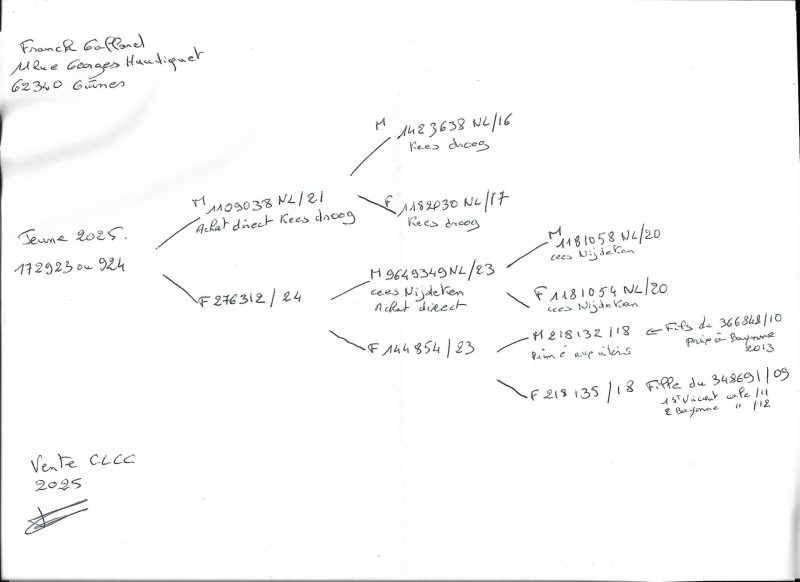 Franck
11 Rue Georges Haudiquet
62340 Guînes
M 1423638 NL/16
Kees droog
F 1182030 NL/17
Kees droog
M 1109038 NL/21
Achat direct Kees droog
Jeune 2025.
172923 ou 924
F 276312 / 24
M 9649349 NL/23
cees Nijdeken
Achat direct
F 144854 / 23
M 1181058 NL/20
cees Nijdeken
F 1181054 NL/20
cees Nijdeken
M 218132 /18 ← Fils du 366848/10
à Bayonne
2013
F 218135 /18 Fille du 348691/09
1 St Vincent /11
2 Bayonne " /12
Vente CLCC
2025